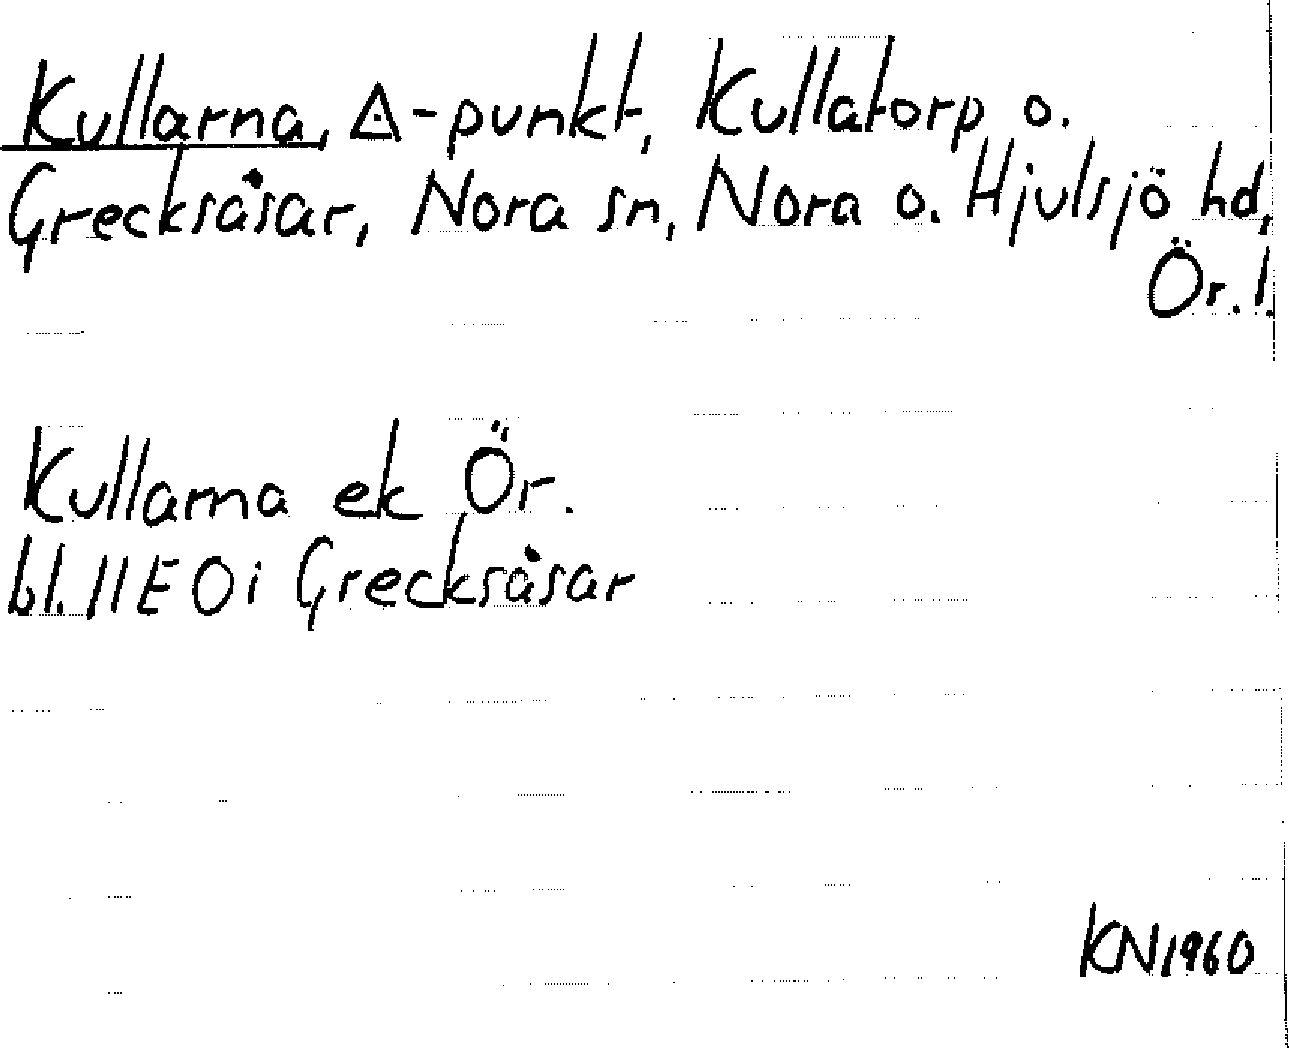 Kullarna, △-punkt, Kullatorp o.
Grecksåsar, Nora sn, Nora o. Hjulsjö hd,
Ör. l.
Kullarna ek Ör.
bl. 11E 0i Grecksåsar
KN1960